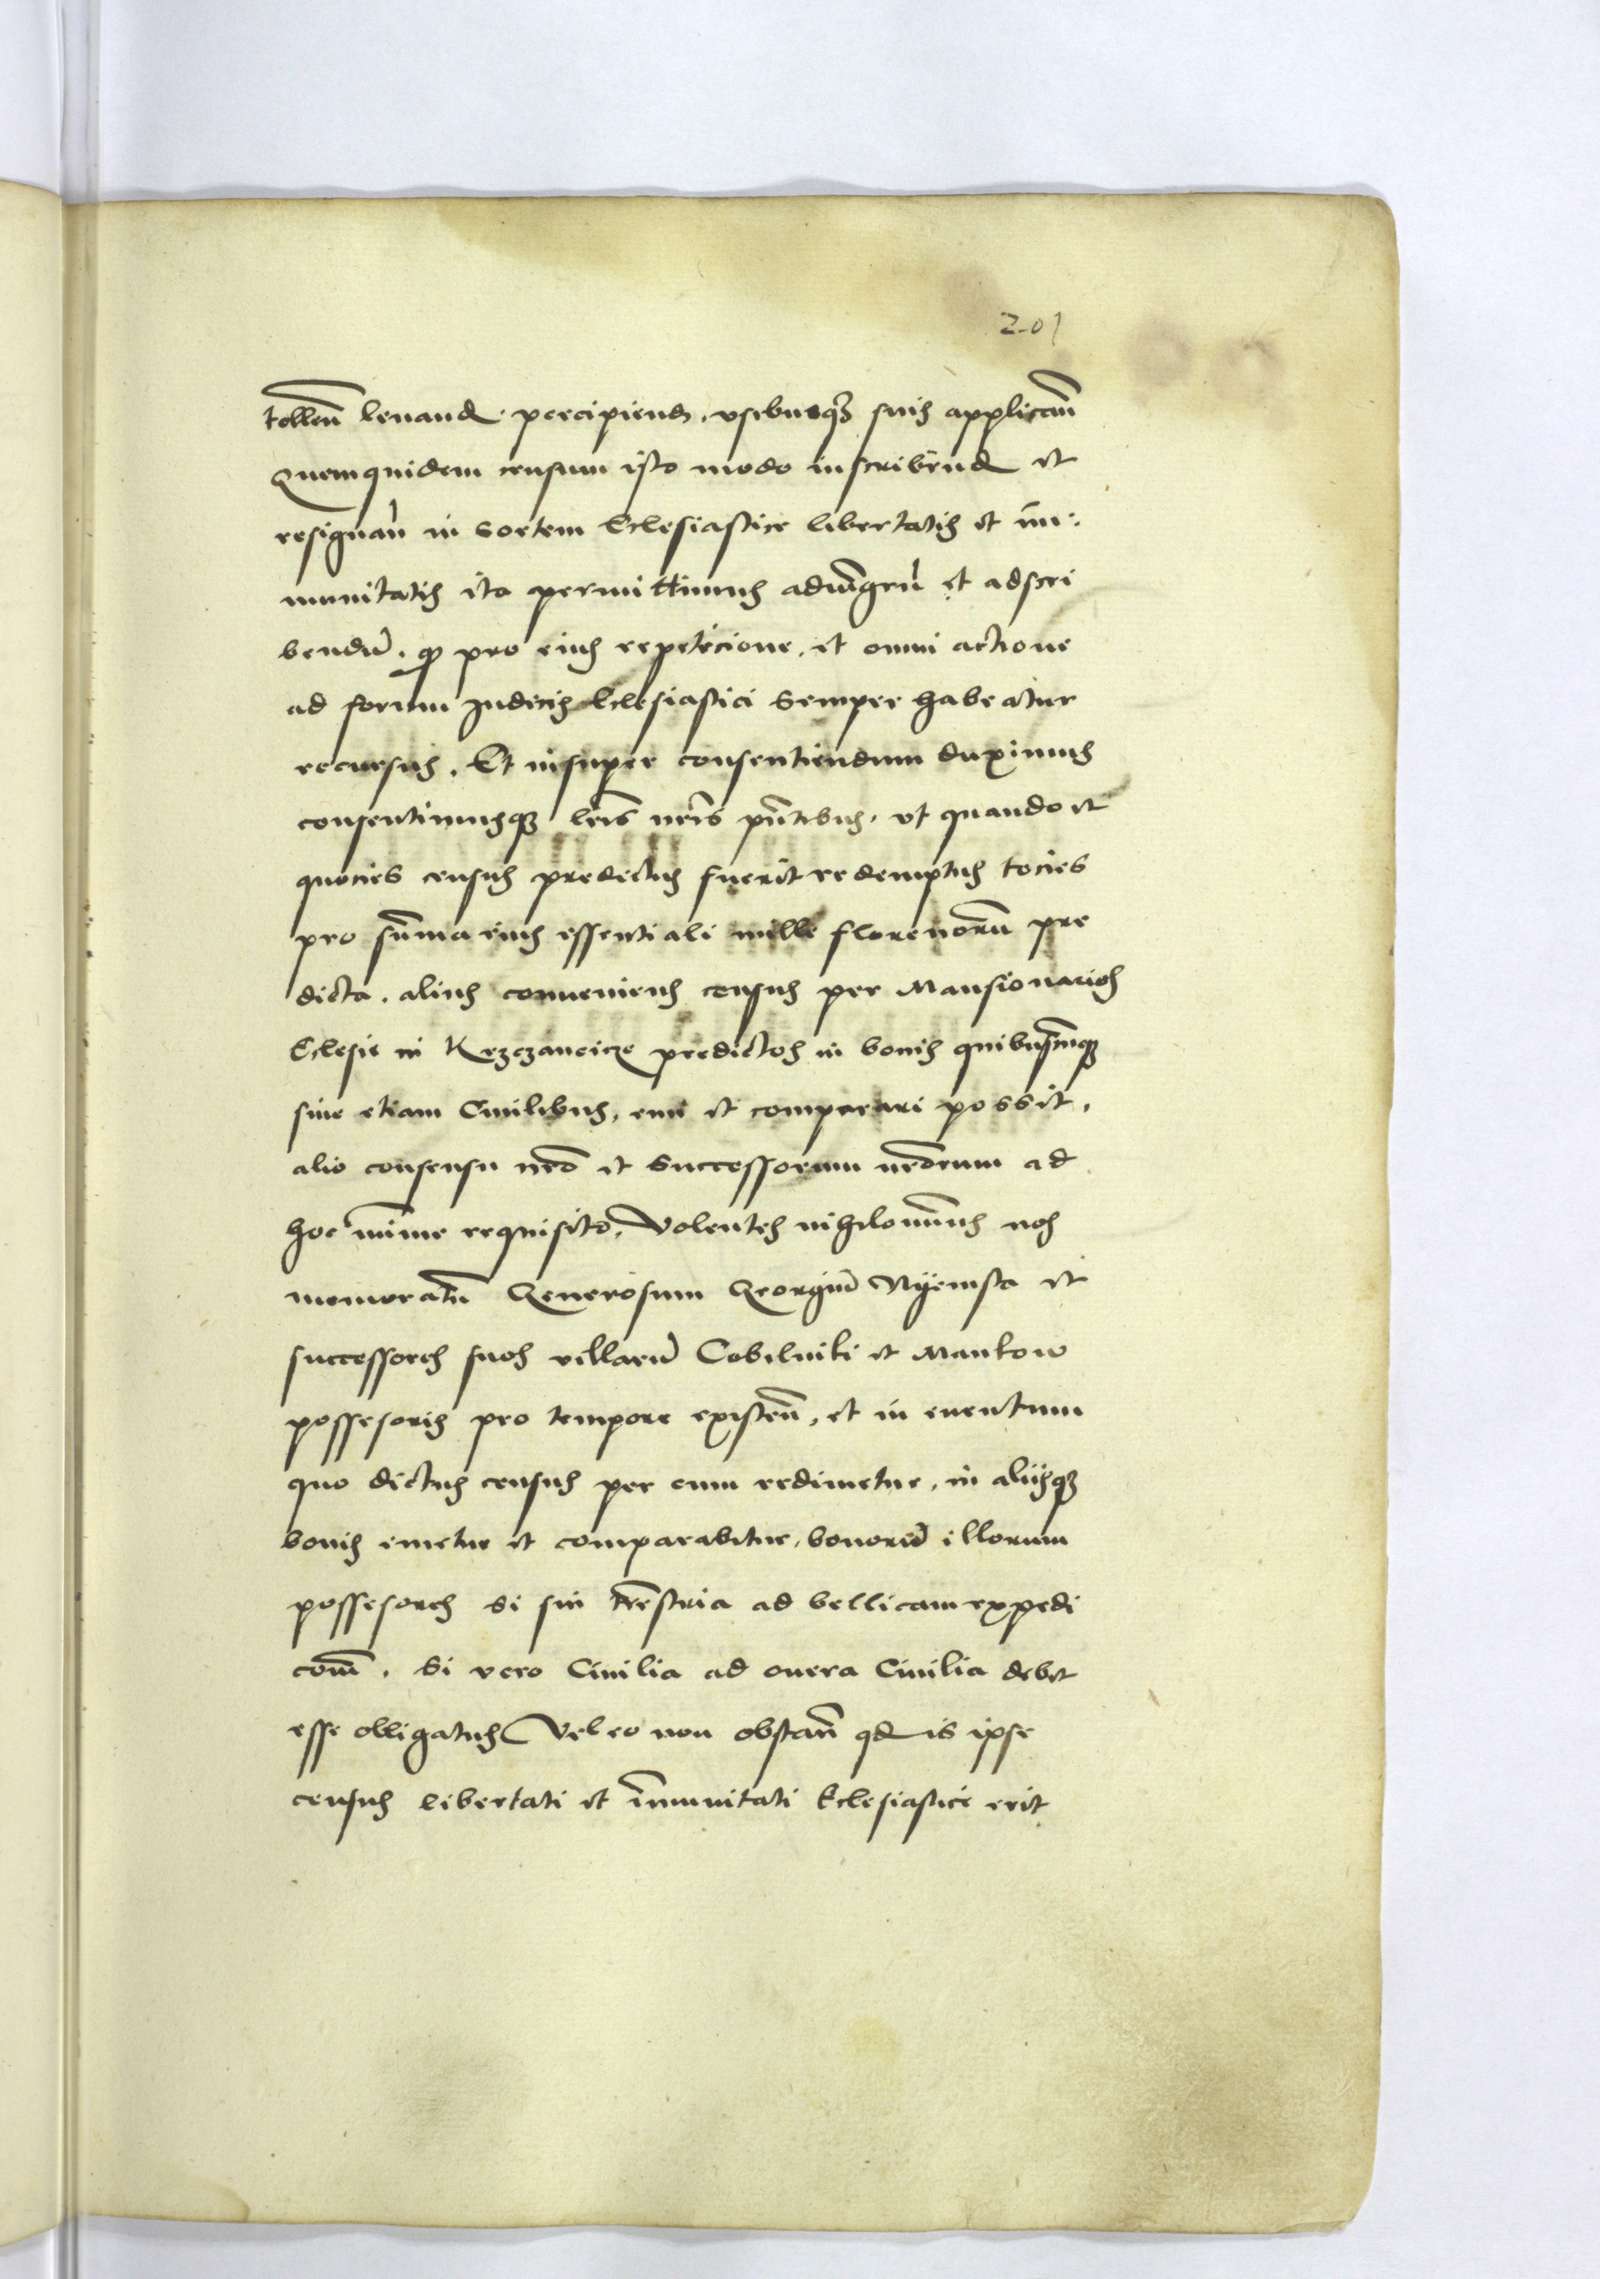 201
tollen̄ leuand percipiend. vsibusq3 suis applican̄
Quemquidem censum isto modo inscribend et
resignan̄ in sortem Eclesiastice libertatis et im̄:
munitatis ita permittimus adiu̅gen̄ et adscri
bendū. qȝ pro eius repeticione. et omni actione
ad forum Judicis Eclesiastici semper habeatur
recursus. Et insuper consentiendum duximus
consentimusqȝ lr̄is nr̄is pn̄tibus. vt quando et
quocies census predictus fuerit redemptus tocies
pro sūma eius essentiali mille florenorū pre
dicta. alius conueniens census per Mansionarios
Eclesie in Krzczancicze predictos in bonis quibuscūqȝ
siue etiam Ciuilibus, emi et comparari possit,
alio consensu nr̄o et successorum nr̄orum ad
hoc mīme requisito. Volentes nihilomīnus nos
memoratū Generosum Georgiū Nÿemsta et
successores suos villarū Cobilniki et Mankow
possesoris pro tempore existen̄, et in euentum
quo dictus census per eum redimetur, in alijsqȝ
bonis emetur et comparabitur, bonorū illorum
possesores Si sin tr̄estria ad bellicam expedi
com̄. Si vero Ciuilia ad onera Ciuilia debet
esse obligatus Vel eo non obstan̄ qd is ipse
census libertati et im̄unitati Eclesiastice erit